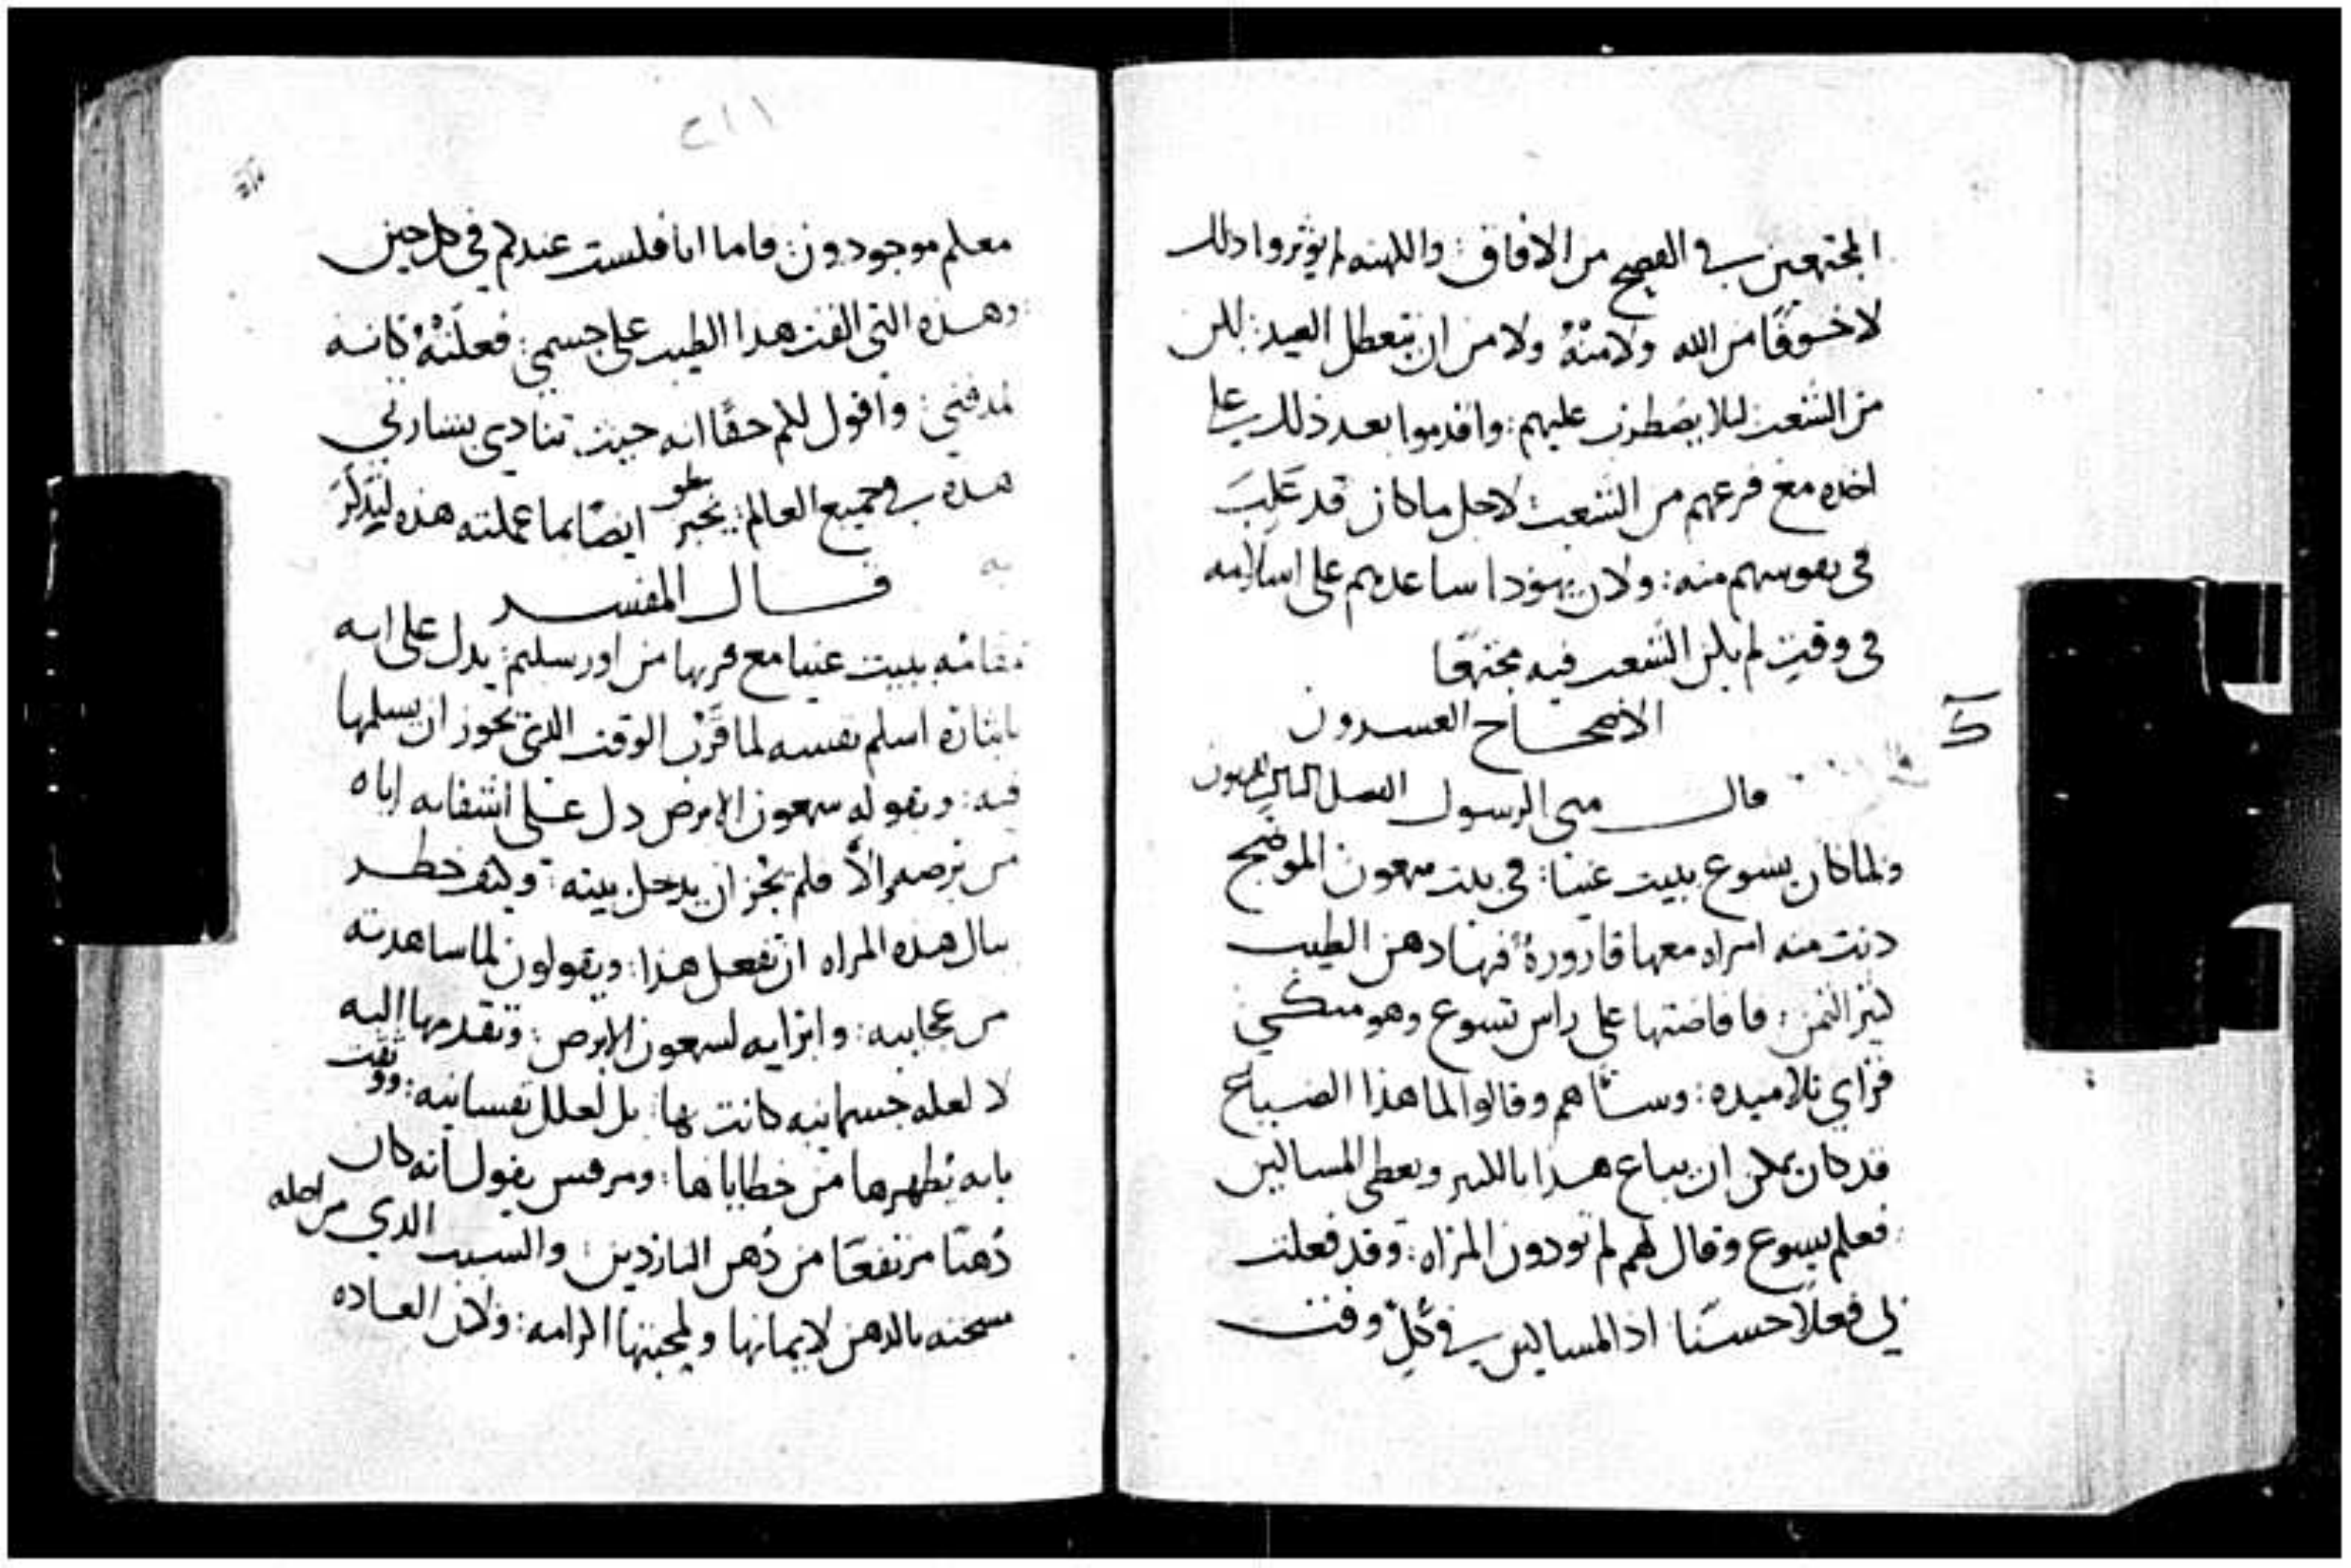 المجتمعين في الفصح من الافاق: والكهنه لم يوثروا ذلك
لا خوفًا من الله ولا منهُ ولا من ان يتعطل العيد: لكن
من الشعب ليلا يضطرب عليهم: واقدموا بعد ذلك على
اخده مع فزعهم من الشعب لاجل ما كان قد غلب
في نفوسهم منه: ولان يهودا ساعدهم على اسلامه
في وقت لم يكن الشعب فيه مجتمعًا
الاصحاح العسرون
ك
قال متى الرسول الفصل
ولما كان يسوع ببيت عنيا: في بيت سمعون الموضح
دنت منه امراه معها قارورةُ فيها دهن الطيب
كثير الثمن: فافاضتها على راس يسوع وهو متكي
فراي تلاميده: وساهم وقالوا لما هذا الضياع
قد كان يمكن ان يباع هدا بالكثير ويعطى المساكين
فعلم يسوع وقال لهم لم تودون المراه: وقد فعلت
بي فعلًا حسنًا اذ المساكين في كلِّ وقت
٢١١
معكم موجودون: فاما انا فلست عندكم في كل حين
وهذه التي القت هدا الطيب على جسمي: فعلتهُ كانه
لمدفني: واقول لكم حقًا انه حيث تنادى بشارتي
هذه في جميع العالم: يخبر ايضًا بما عملته هذه لتذكر
به
قال المفسر
مقامه ببيت عنيا مع قربها من اورسليم: يدل على انه
بايثاره اسلم نفسه لما قرب الوقت الذي يجوز ان يسلمها
فيه: وبقوله سمعون الابرص دل على اشفايه اياه
من برصه والّا فلم يجز ان يدخل بيته: وكيف خطر
ببال هذه المراه ان تفعل هذا: ويقولون لما ساهدته
من عجايبه: وابرايه لسمعون الابرص: وتقدمها اليه
لا لعله جسمانيه كانت بها: بل لعلل نفسانيه: ووثقت
بانه يُطهرها من خطاياها: ومرقس يقول انه كان
دُهنًا مرتفعًا من دُهن الناردين: والسبب الدي من اجله
مسحته بالدهن لايمانها ولمحبتها اكرامه: ولان العاده